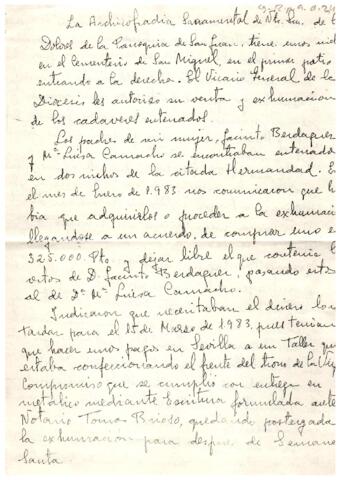 La Archicofradia Sacramental de Ntra. Sra. de l
Dolores de la Parroquia de San Juan, tiene unos nich
en el Cementerio de San Miguel, en el primer patio
entrando a la derecha. El Vicario General de la
Diocesis les autorizo su venta y exhumacion
de los cadaveres enterrados.
Los padres de mi mujer, Jacinto Berdaguer
y Mª Luisa Camacho se encontraban enterrado
en dos nichos de la citada Hermandad. E
el mes de Enero de 1.983 nos comunicaron que h
bia que adquirirlos o proceder a la exhumaci
llegandose a un acuerdo de comprar uno e
325.000. Pts. y dejar libre el que contenia l
restos de D. Jacinto Berdaguer, pasando estos
al de Dª Mª Luisa Camacho.
Indicaron que necesitaban el dinero lo
tardar para el 15 de Marzo de 1983, pues tenian
que hacer unos pagos en Sevilla a un Taller qu
estaba confeccionando el frente del trono de la Virg
Compromiso que se cumplio con entrega en
metalico mediante Escritura formulada ante
Notario Tomas Brioso, quedando postergada
la exhumación para despues de Semana
Santa.